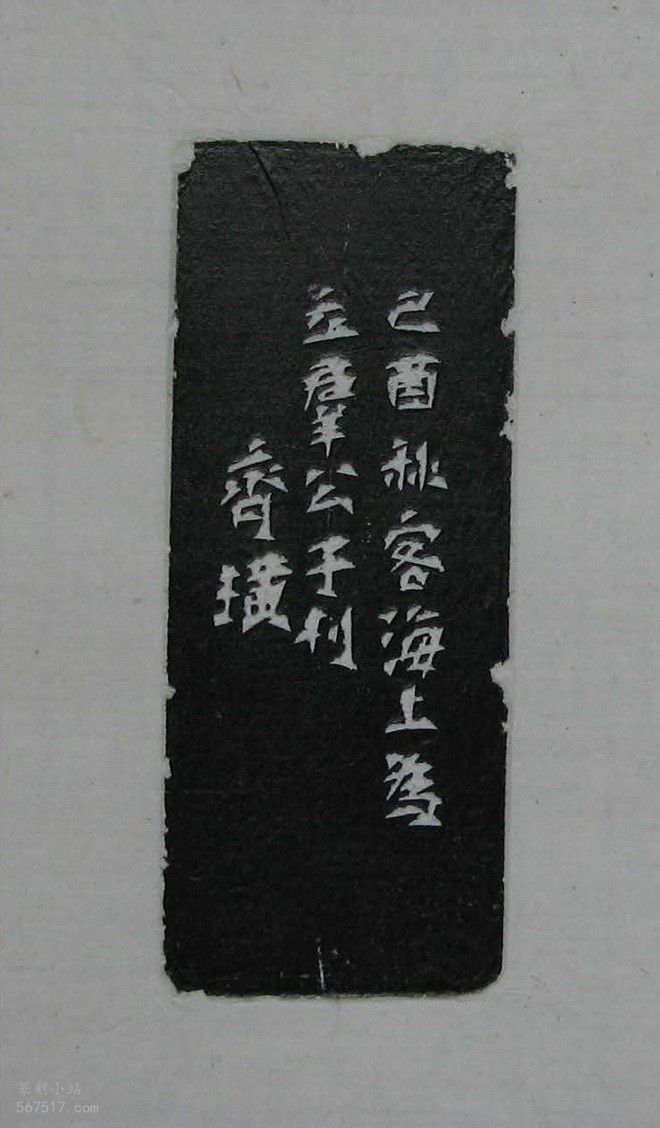 己酉秋客海上為
立羣公子刊
齊璜
篆刻小站
567517.com